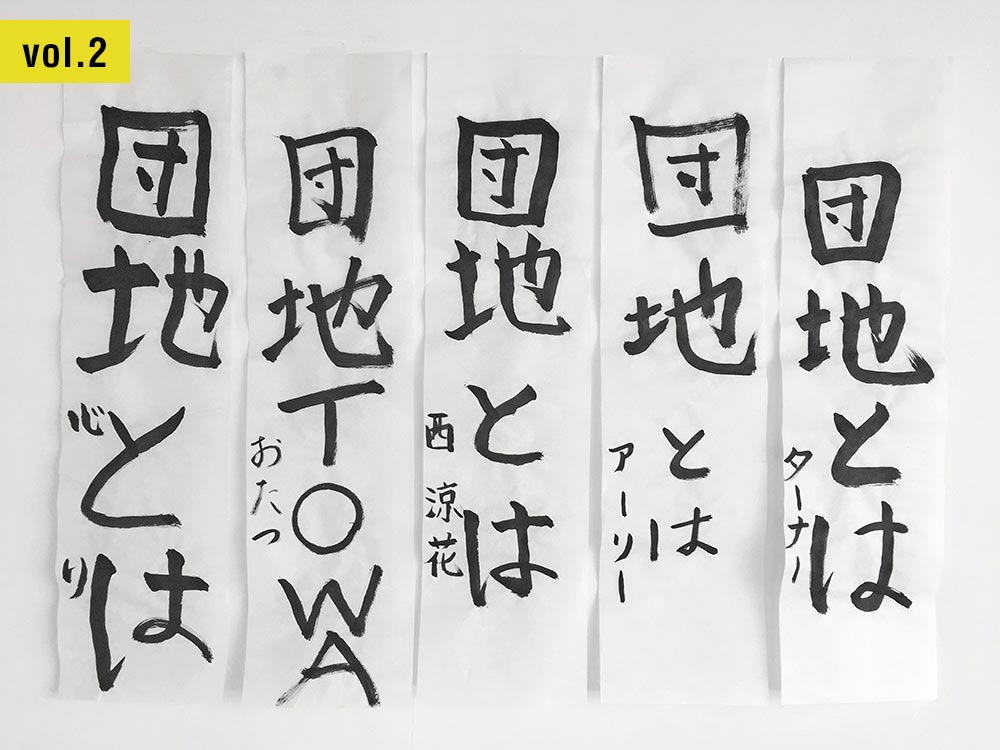 vol.2
団地とは
ターナー
団地とは
アーリー
団地とは
西 涼花
団地TOWA
おたつ
団地とは
心り